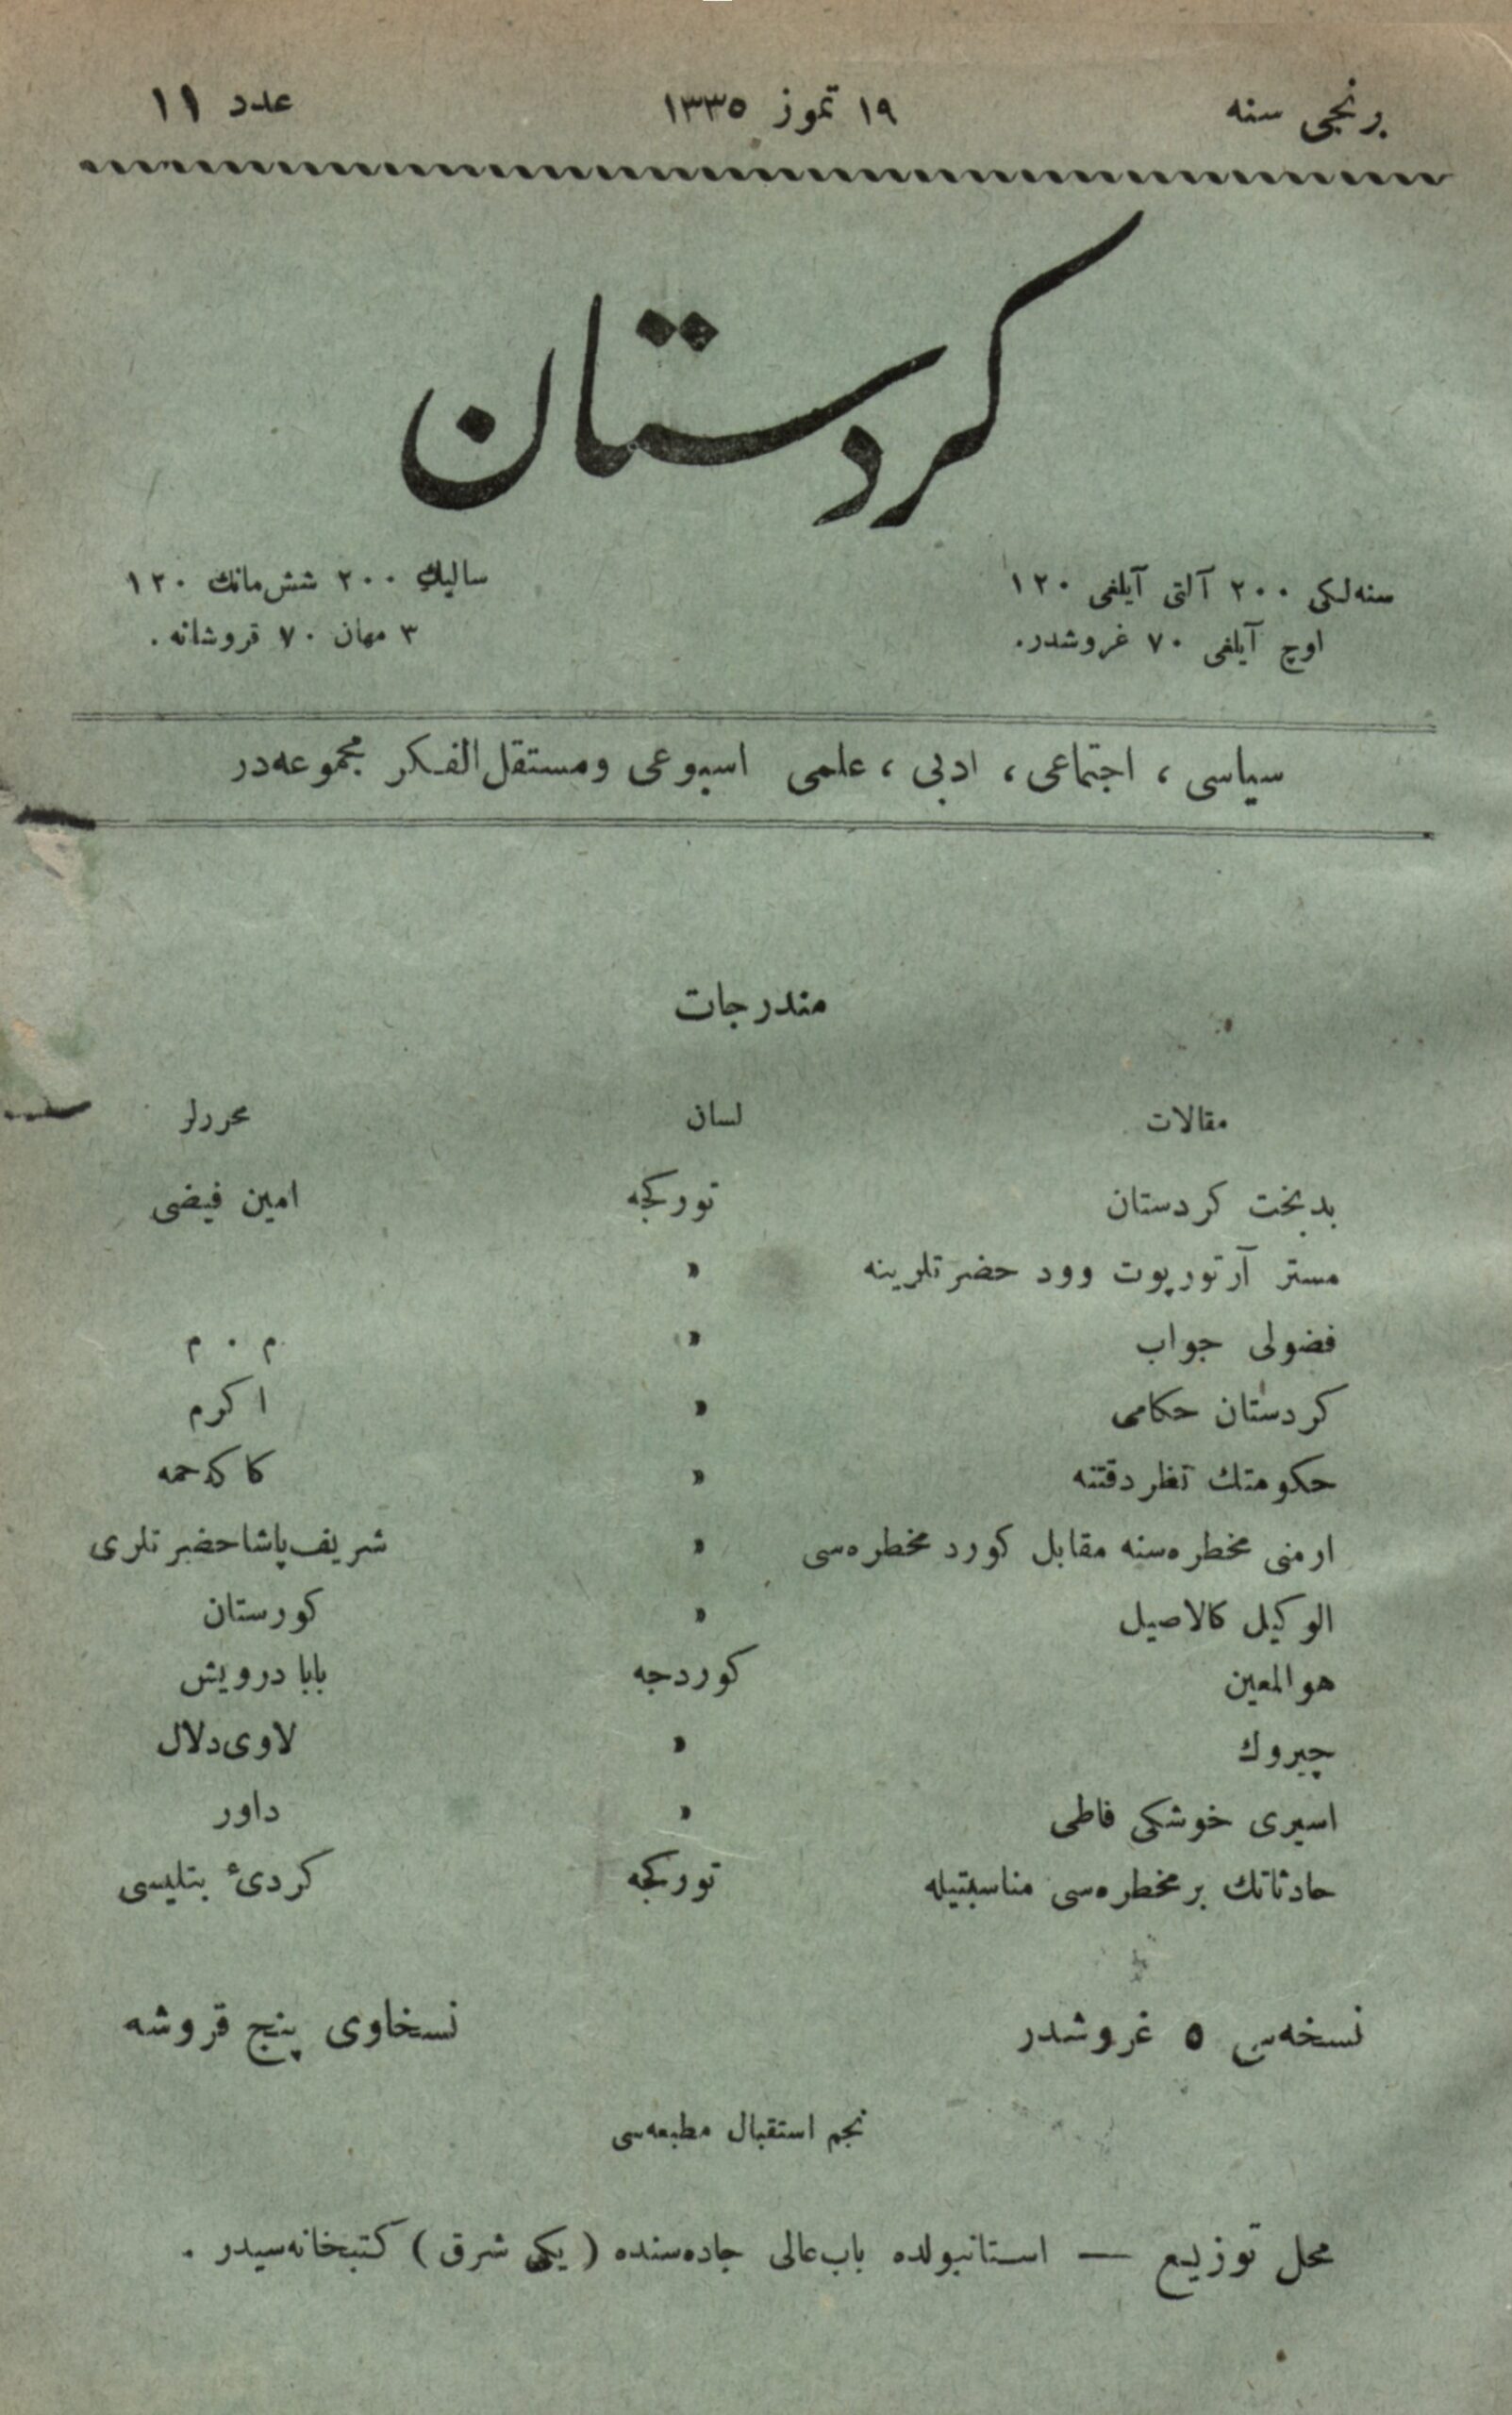 برنجی سنه ١٩ تموز ١٣٣٥ عدد ١١
كردستان
سنه‌لكی ٢٠٠ آلتی آیلغی ١٢٠
اوچ آیلغی ٧٠ غروشدر.
سالیك ٢٠٠ شش‌مانك ١٢٠
٣ مهان ٧٠ قروشانه .
سیاسی ، اجتماعی ، ادبی ، علمی اسبوعی ومستقل‌الفكر مجموعه‌در
مندرجات
مقالات لسان محررلر
بدبخت كردستان توركجه امین فیضی
مستر آرتورپوت وود حضرتلرینه »
فضولی جواب » م ٠ م
كردستان حكامی » اكرم
حكومتك نظر دقتنه » كاكه‌حمه
ارمنی مخطره‌سنه مقابل كورد مخطره‌سی » شریف‌پاشاحضرتلری
الوكیل كالاصیل » كورستان
هوالمعین كوردجه بابا درویش
چیروك » لاوی‌دلال
اسیری خوشكی فاطی » داور
حادثاتك برمخطره‌سی مناسبتیله توركجه كردیٔ بتلیسی
نسخه‌سی ٥ غروشدر نسخاوی پنج قروشه
نجم استقبال مطبعه‌سی
محل توزیع — استانبولده باب‌عالی جاده‌سنده ( یكی شرق ) كتبخانه‌سیدر .